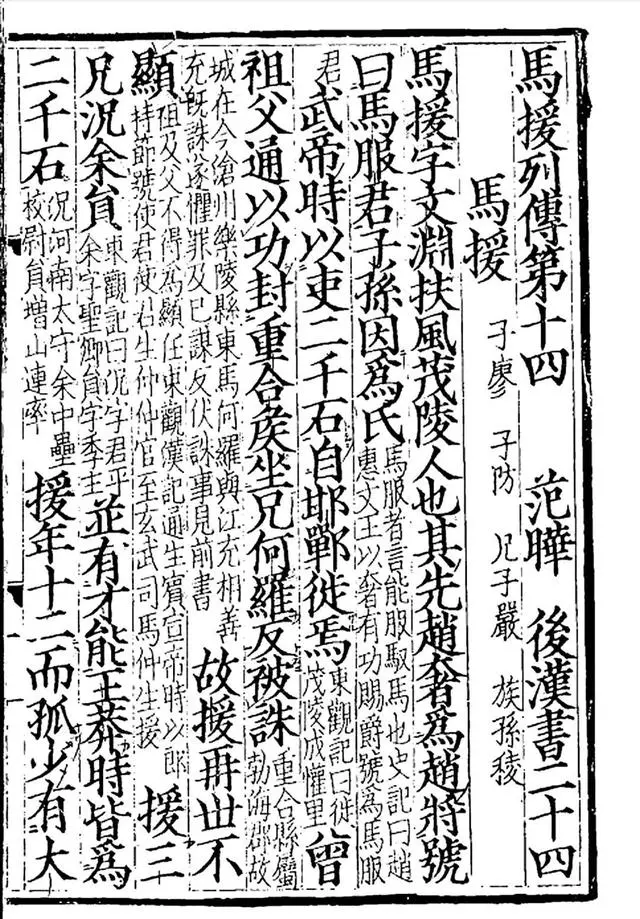 馬援列傳第十四 范曄 後漢書二十四
馬援 子廖 子防 兄子嚴 族孫稜
馬援字文淵扶風茂陵人也其先趙奢爲趙將號
曰馬服君子孫因爲氏馬服者言能服馭馬也史記曰趙惠文王以奢有功賜爵號爲馬服
君武帝時以吏二千石自邯鄲徙焉東觀記曰徙茂陵成懽里曾
祖父通以功封重合侯坐兄何羅反被誅重合縣屬勃海郡故
城在今滄州樂陵縣東馬何羅與江充相善充旣誅遂懼罪及已謀反伏誅事見前書故援再世不
顯祖及父不得為顯任東觀漢記通生賓宣帝時以郎持節號使君使君生仲仲官至玄武司馬仲生援援三
兄況余員東觀記曰況字君平余字聖卿員字季主並有才能王莽時皆爲
二千石況河南太守余中壘校尉員增山連率援年十二而孤少有大